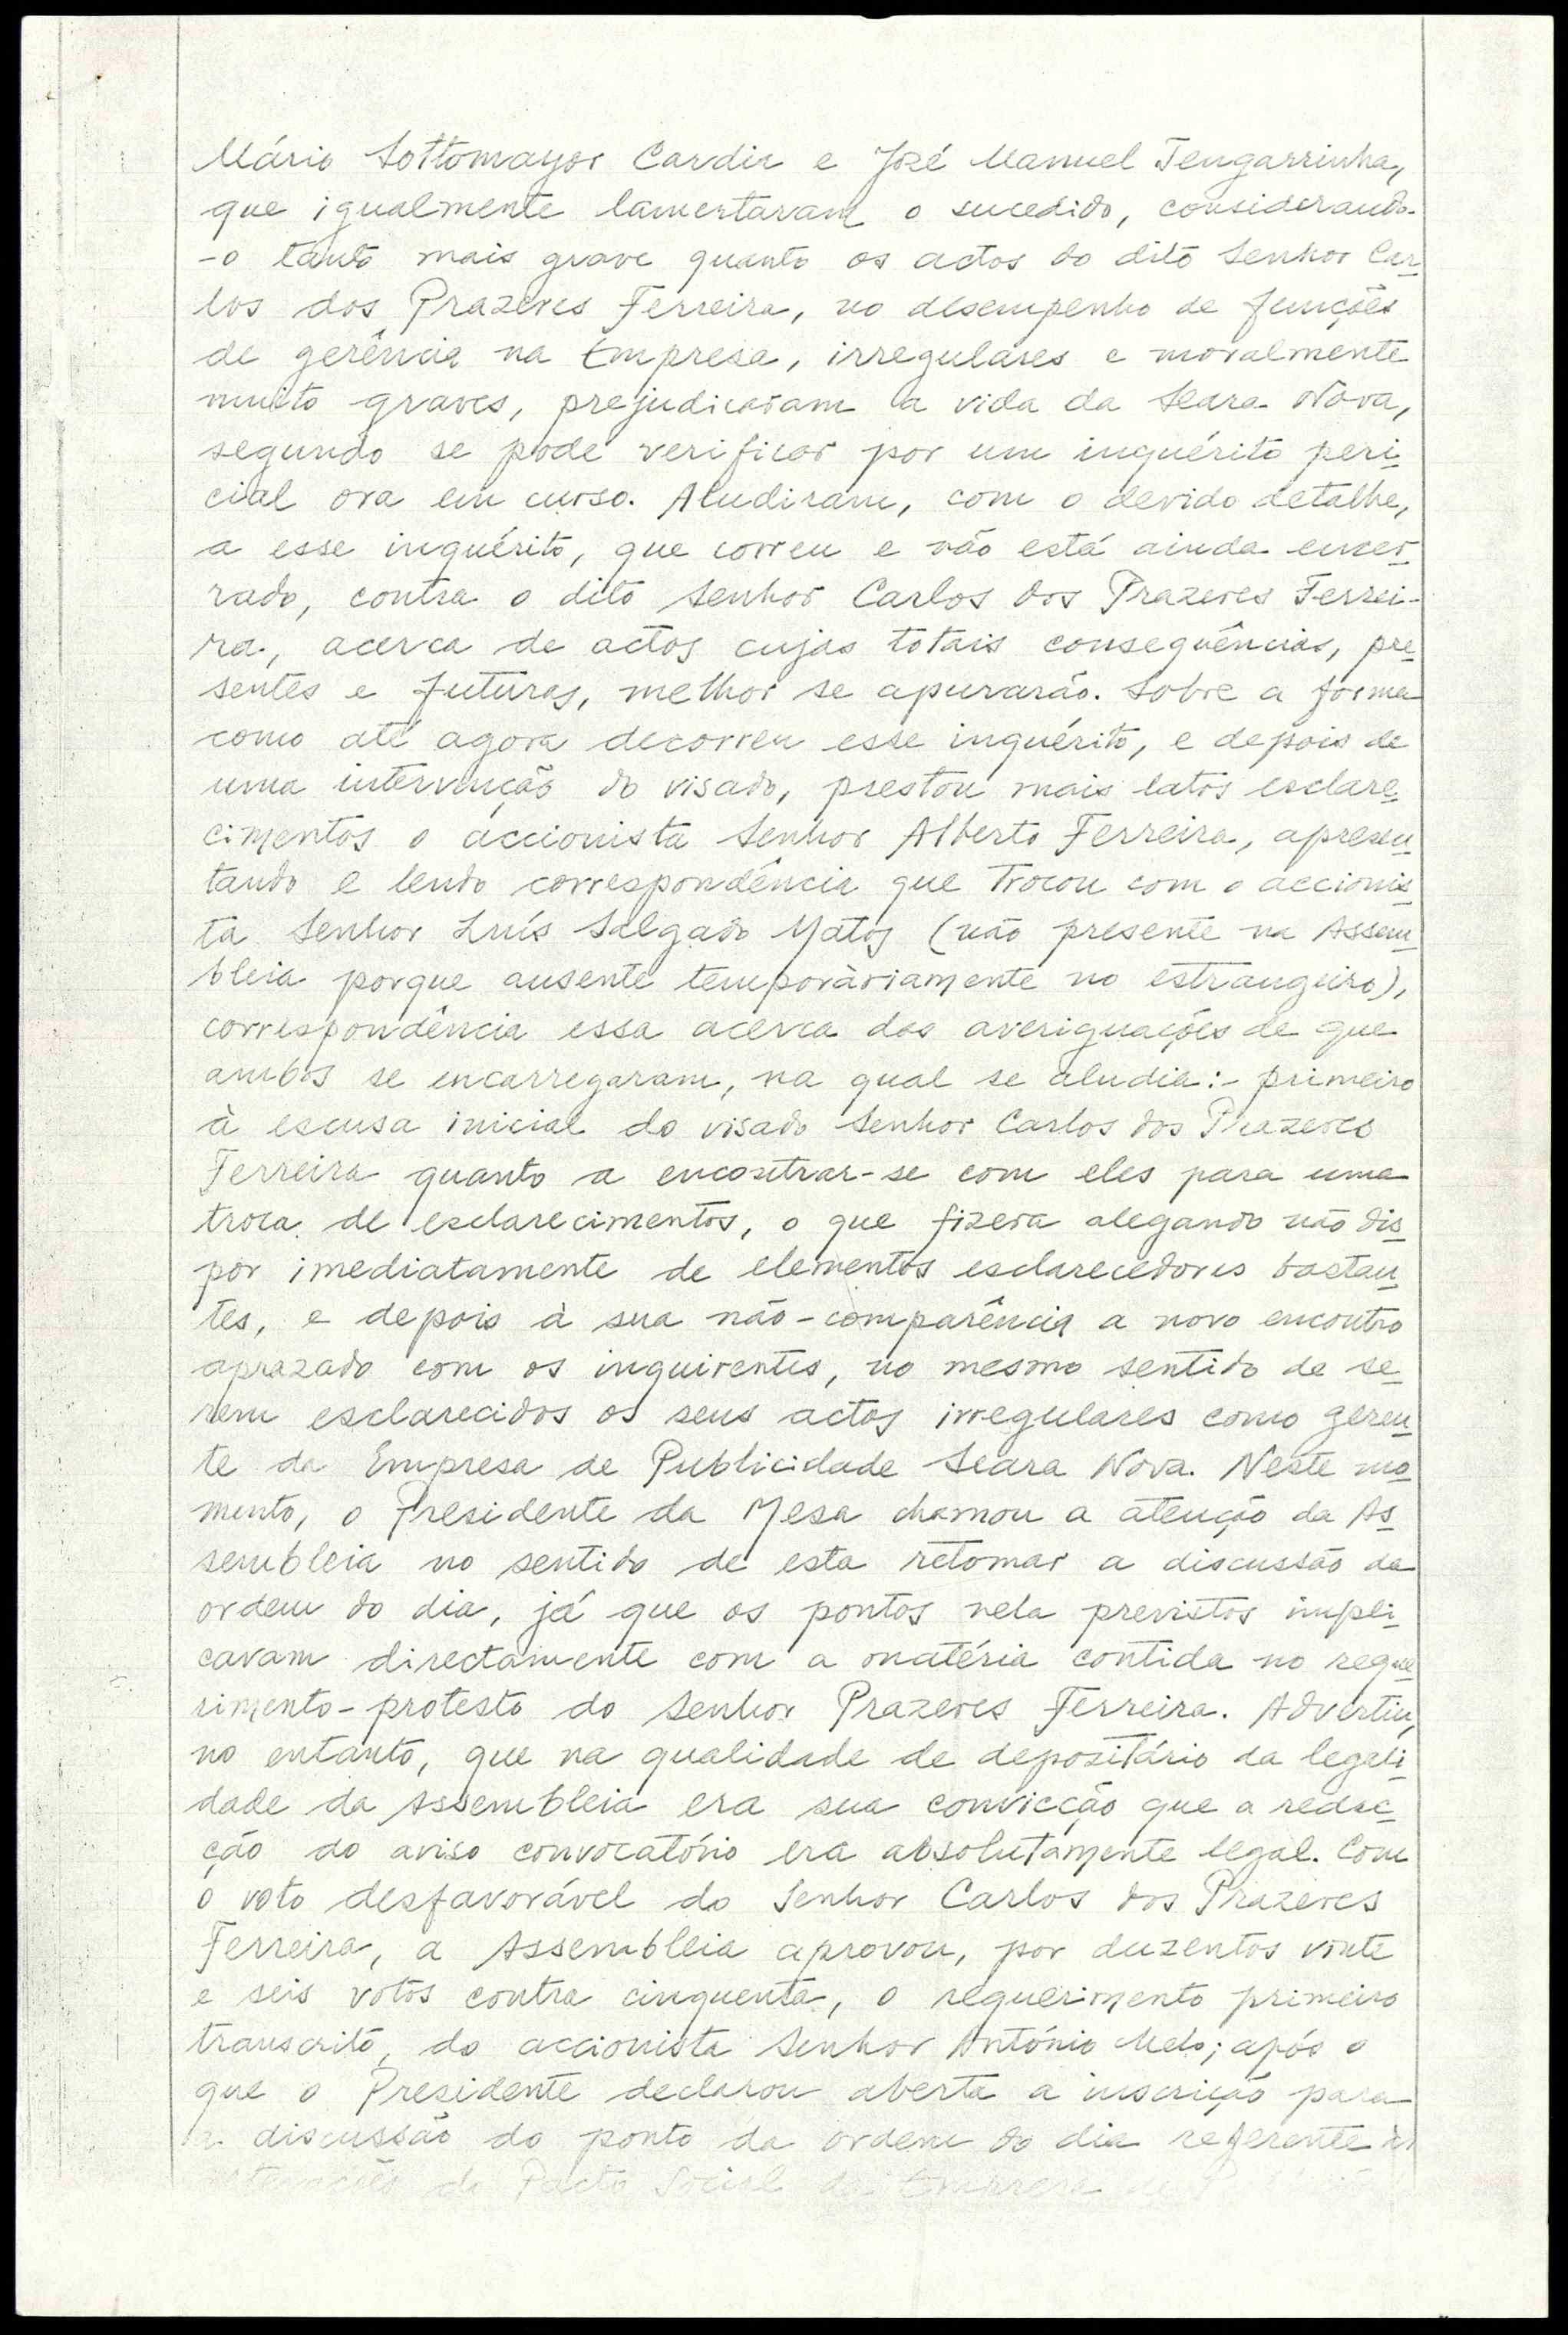 Mário Sottomayor Cardia e José Manuel Tengarrinha,
que igualmente lamentaram o sucedido, considerando-
-o tanto mais grave quanto os actos do dito Senhor Car-
los dos Prazeres Ferreira, no desempenho de funções
de gerência na Empresa, irregulares e moralmente
muito graves, prejudicaram a vida da Seara Nova,
segundo se pode verificar por um inquérito peri-
cial ora em curso. Aludiram, com o devido detalhe,
a esse inquérito, que correu e não está ainda encer-
rado, contra o dito Senhor Carlos dos Prazeres Ferrei-
ra, acerca de actos cujas totais consequências, pre-
sentes e futuras, melhor se apurarão. Sobre a forma
como até agora decorreu esse inquérito, e depois de
uma intervenção do visado, prestou mais latos esclare-
cimentos o accionista Senhor Alberto Ferreira, apresen-
tando e lendo correspondência que trocou com o accionis-
ta Senhor Luís Salgado Matos (não presente na Assem-
bleia porque ausente temporàriamente no estrangeiro),
correspondência essa acerca das averiguações de que
ambos se encarregaram, na qual se aludia:- primeiro
à escusa inicial do visado Senhor Carlos dos Prazeres
Ferreira quanto a encontrar-se com eles para uma
troca de esclarecimentos, o que fizera alegando não dis-
por imediatamente de elementos esclarecedores bastan-
tes, e depois à sua não-comparência a novo encontro
aprazado com os inquirentes, no mesmo sentido de se-
rem esclarecidos os seus actos irregulares como geren-
te da Empresa de Publicidade Seara Nova. Neste mo-
mento, o Presidente da Mesa chamou a atenção da As-
sembleia no sentido de esta retomar a discussão da
ordem do dia, já que os pontos nela previstos impli-
cavam directamente com a matéria contida no reque-
rimento-protesto do Senhor Prazeres Ferreira. Advertiu,
no entanto, que na qualidade de depositário da legali-
dade da Assembleia era sua convicção que a redac-
ção do aviso convocatório era absolutamente legal. Com
o voto desfavorável do Senhor Carlos dos Prazeres
Ferreira, a Assembleia aprovou, por duzentos vinte
e seis votos contra cinquenta, o requerimento primeiro
transcrito, do accionista Senhor António Melo; após o
que o Presidente declarou aberta a inscrição para
a discussão do ponto da ordem do dia referente às
alterações do Pacto Social da Empresa de